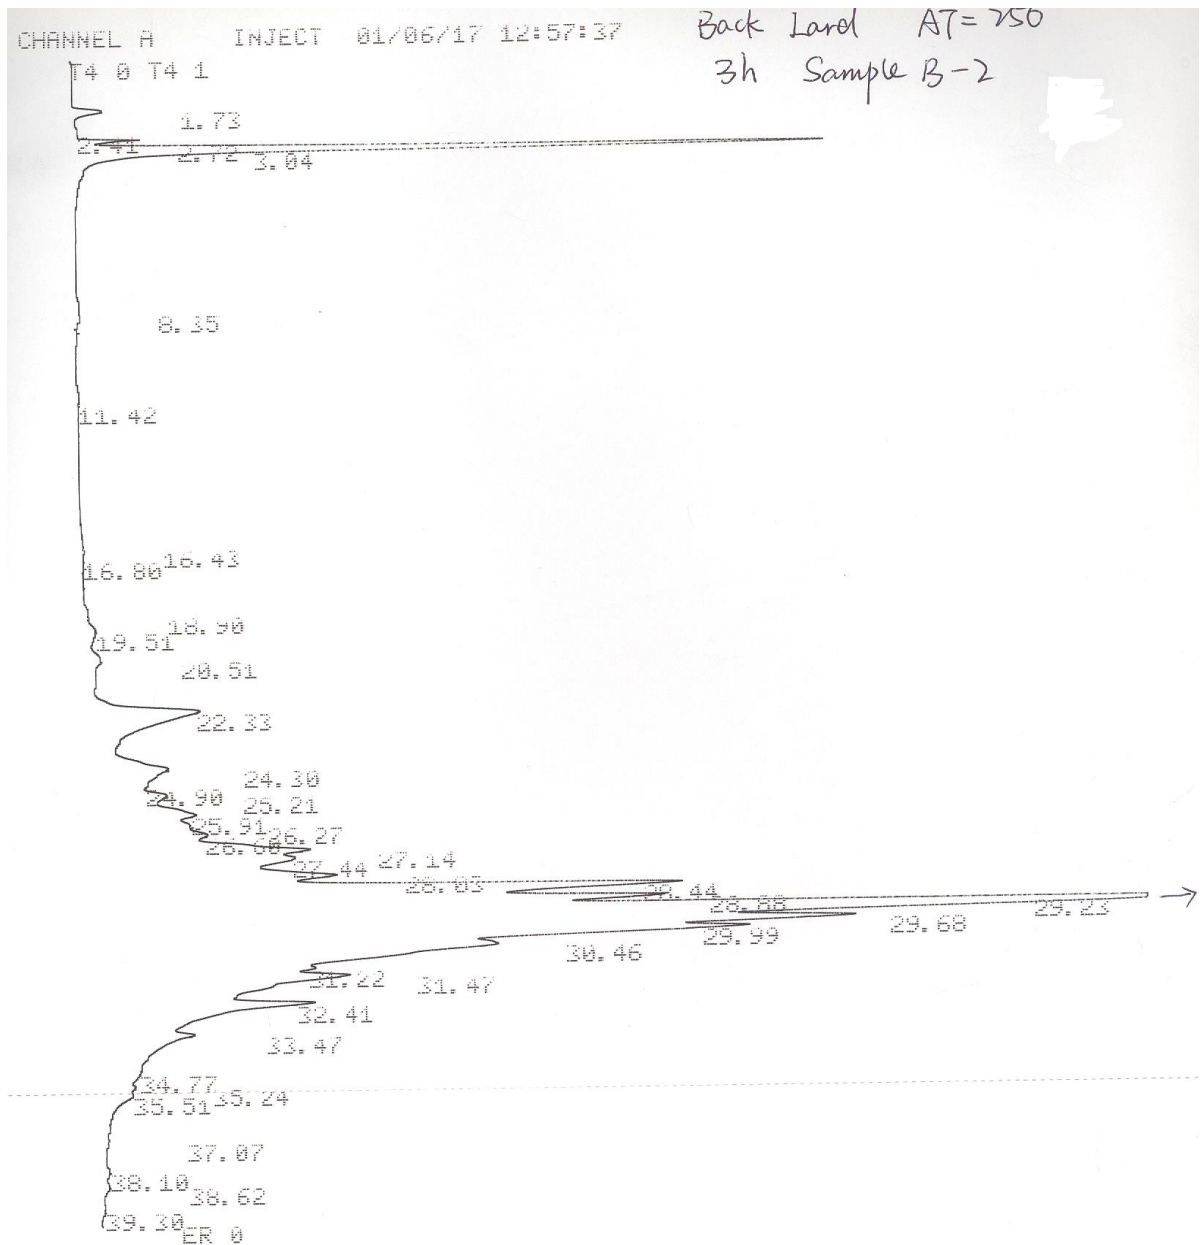 CHANNEL A INJECT 01/06/17 12:57:37
Back Lard AT=250
T4 0 T4 1
3h Sample B-2
1.73
2.41 2.72 3.04
8.35
11.42
16.80 16.43
19.51 18.90
20.51
22.33
24.30
24.90 25.21
25.91 26.27
26.60
27.44 27.14
28.03 28.44
28.88 29.23
29.68
29.99
30.46
31.22 31.47
32.41
33.47
34.77
35.51 35.24
37.07
38.10
38.62
39.30 ER 0